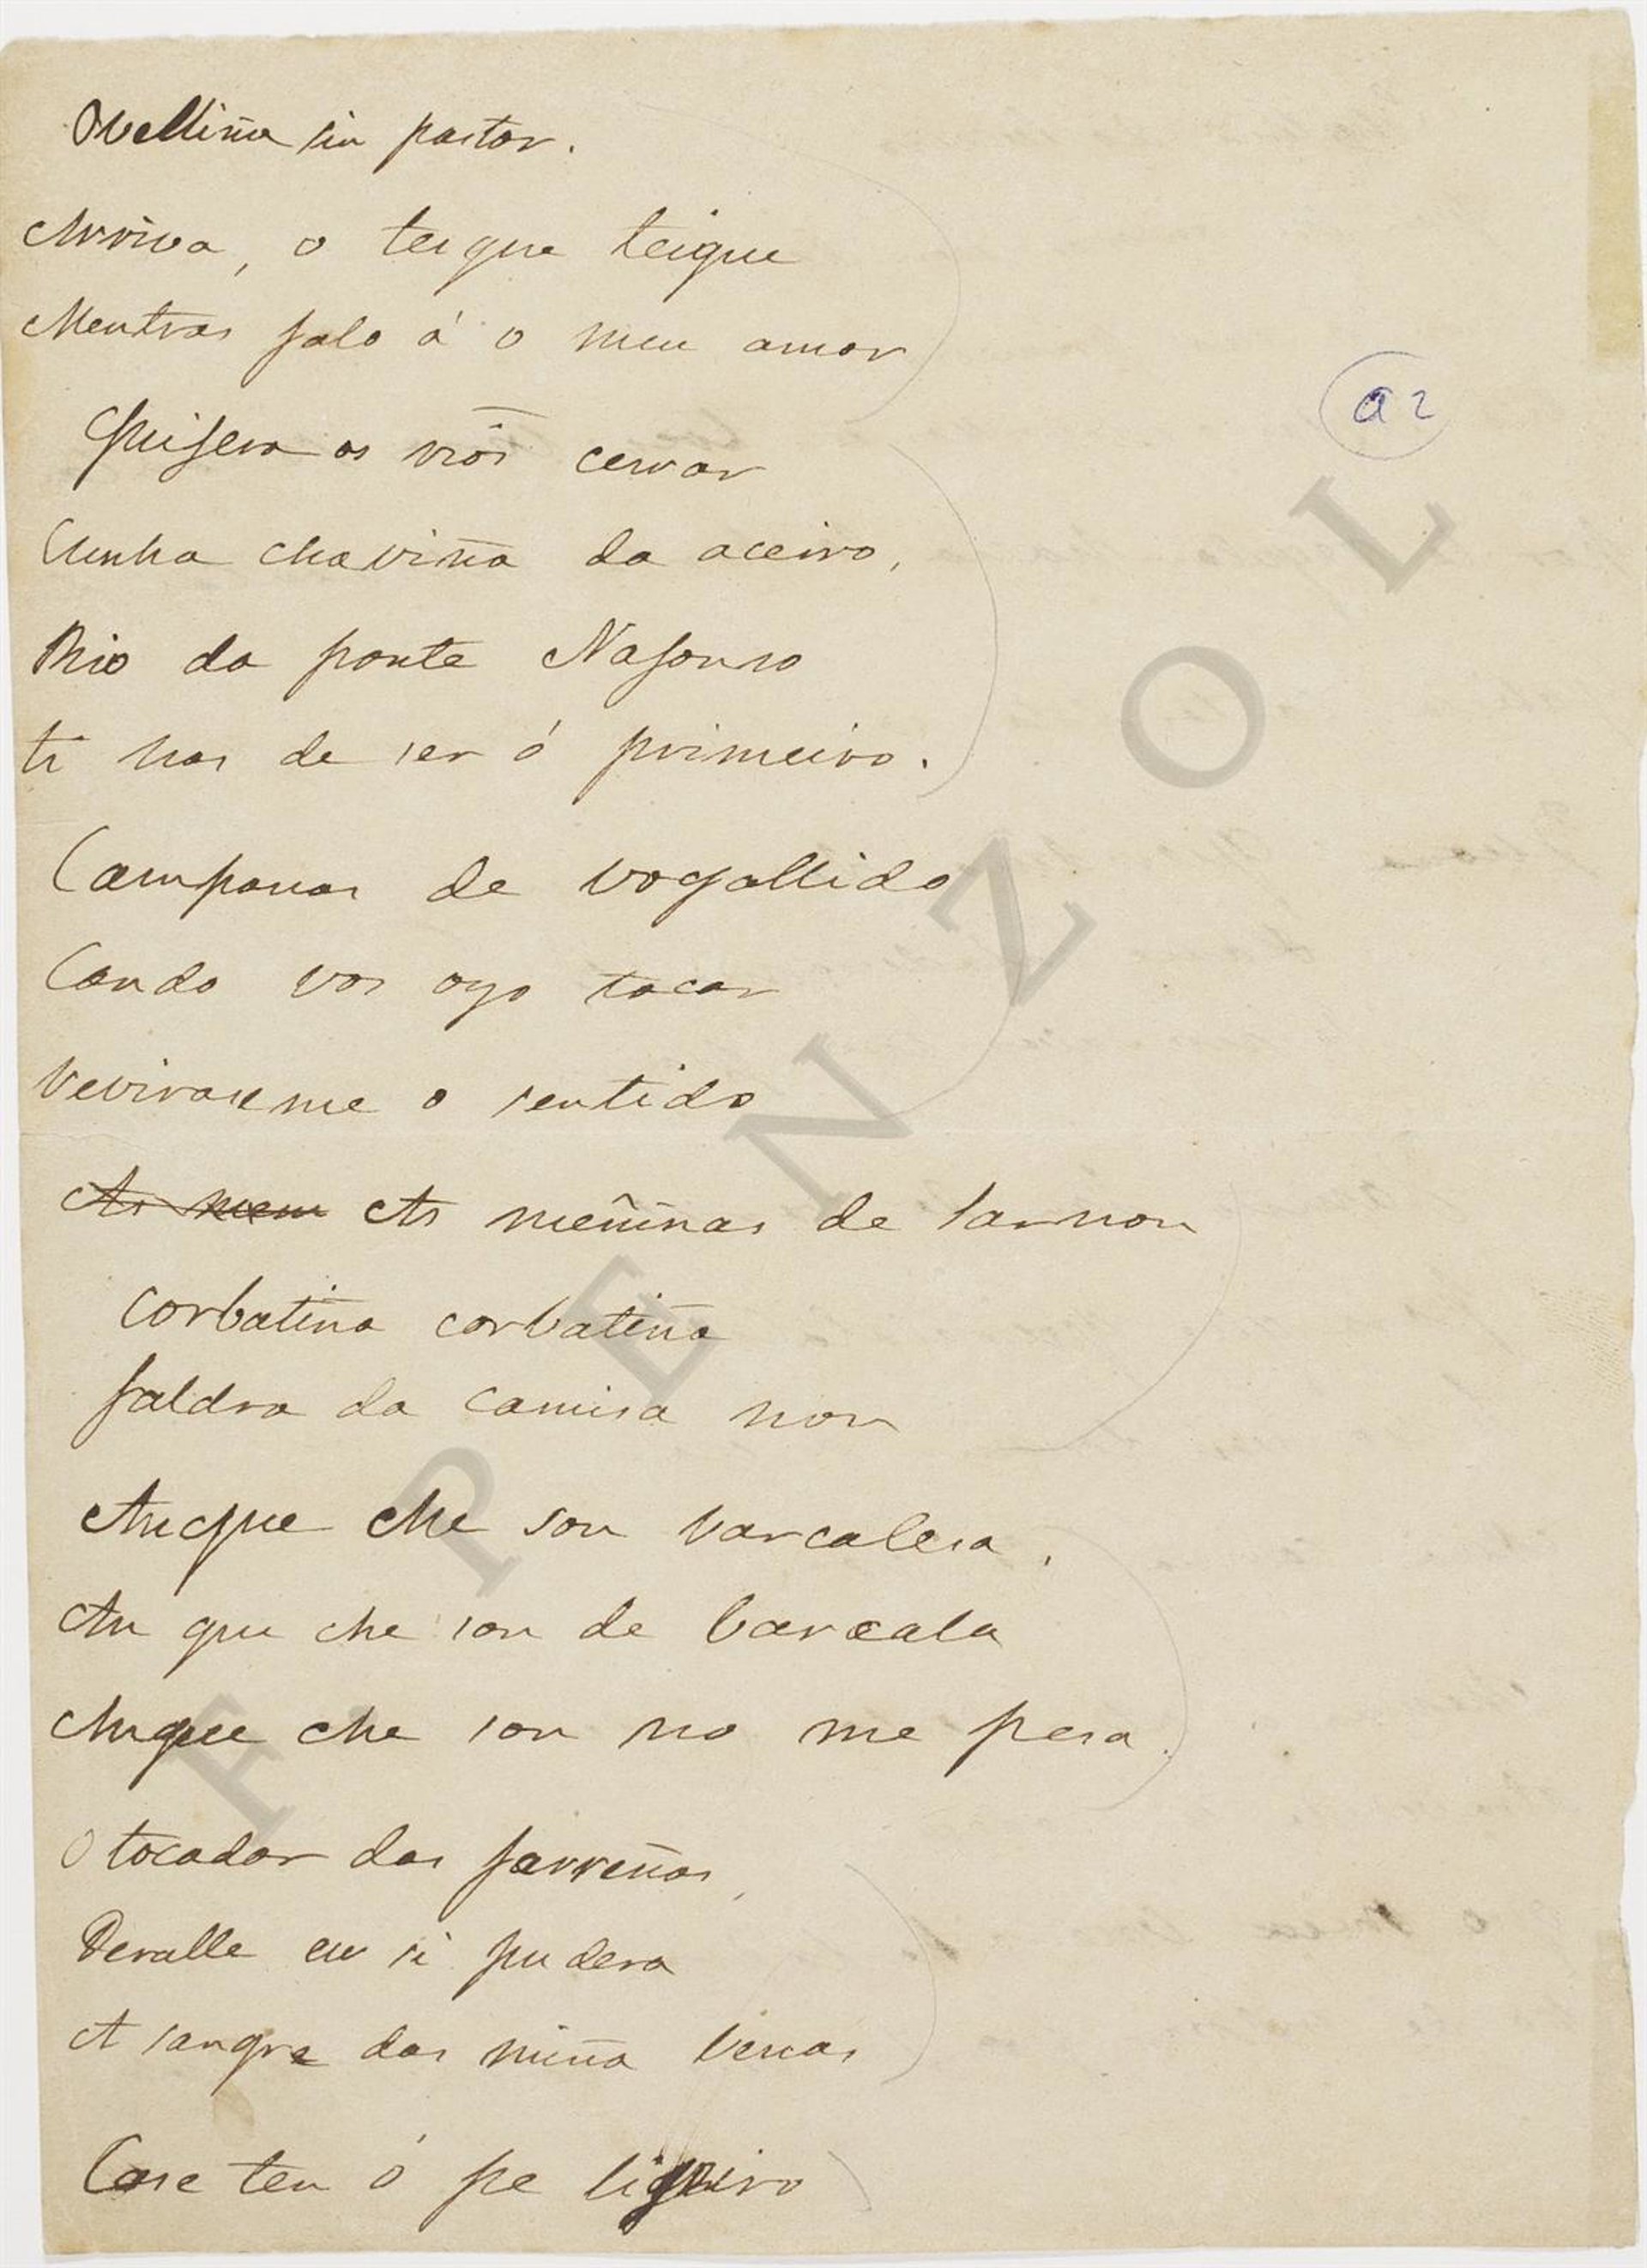 Ovelliña sin pastor.
Arriva, o teigue teigue
Mentras falo á o meu amor
a2
Quisera os rios cerrar
Cunha chaviña da aceiro,
Rio da ponte Nafonso
ti has de ser ó primeiro.
Campanas de vogallido
Cando vos oyo tocar
As meniñas de Sarnon
corbatiña corbatiña
faldra da camisa non
Auque che son varcalesa,
Au que che son de barcala
Auque che son no me pesa.
O tocador das ferreñas,
Deralle eu si pudera
A sangre das miña venas
Case ten ó pe ligeiro
F. PENZOL